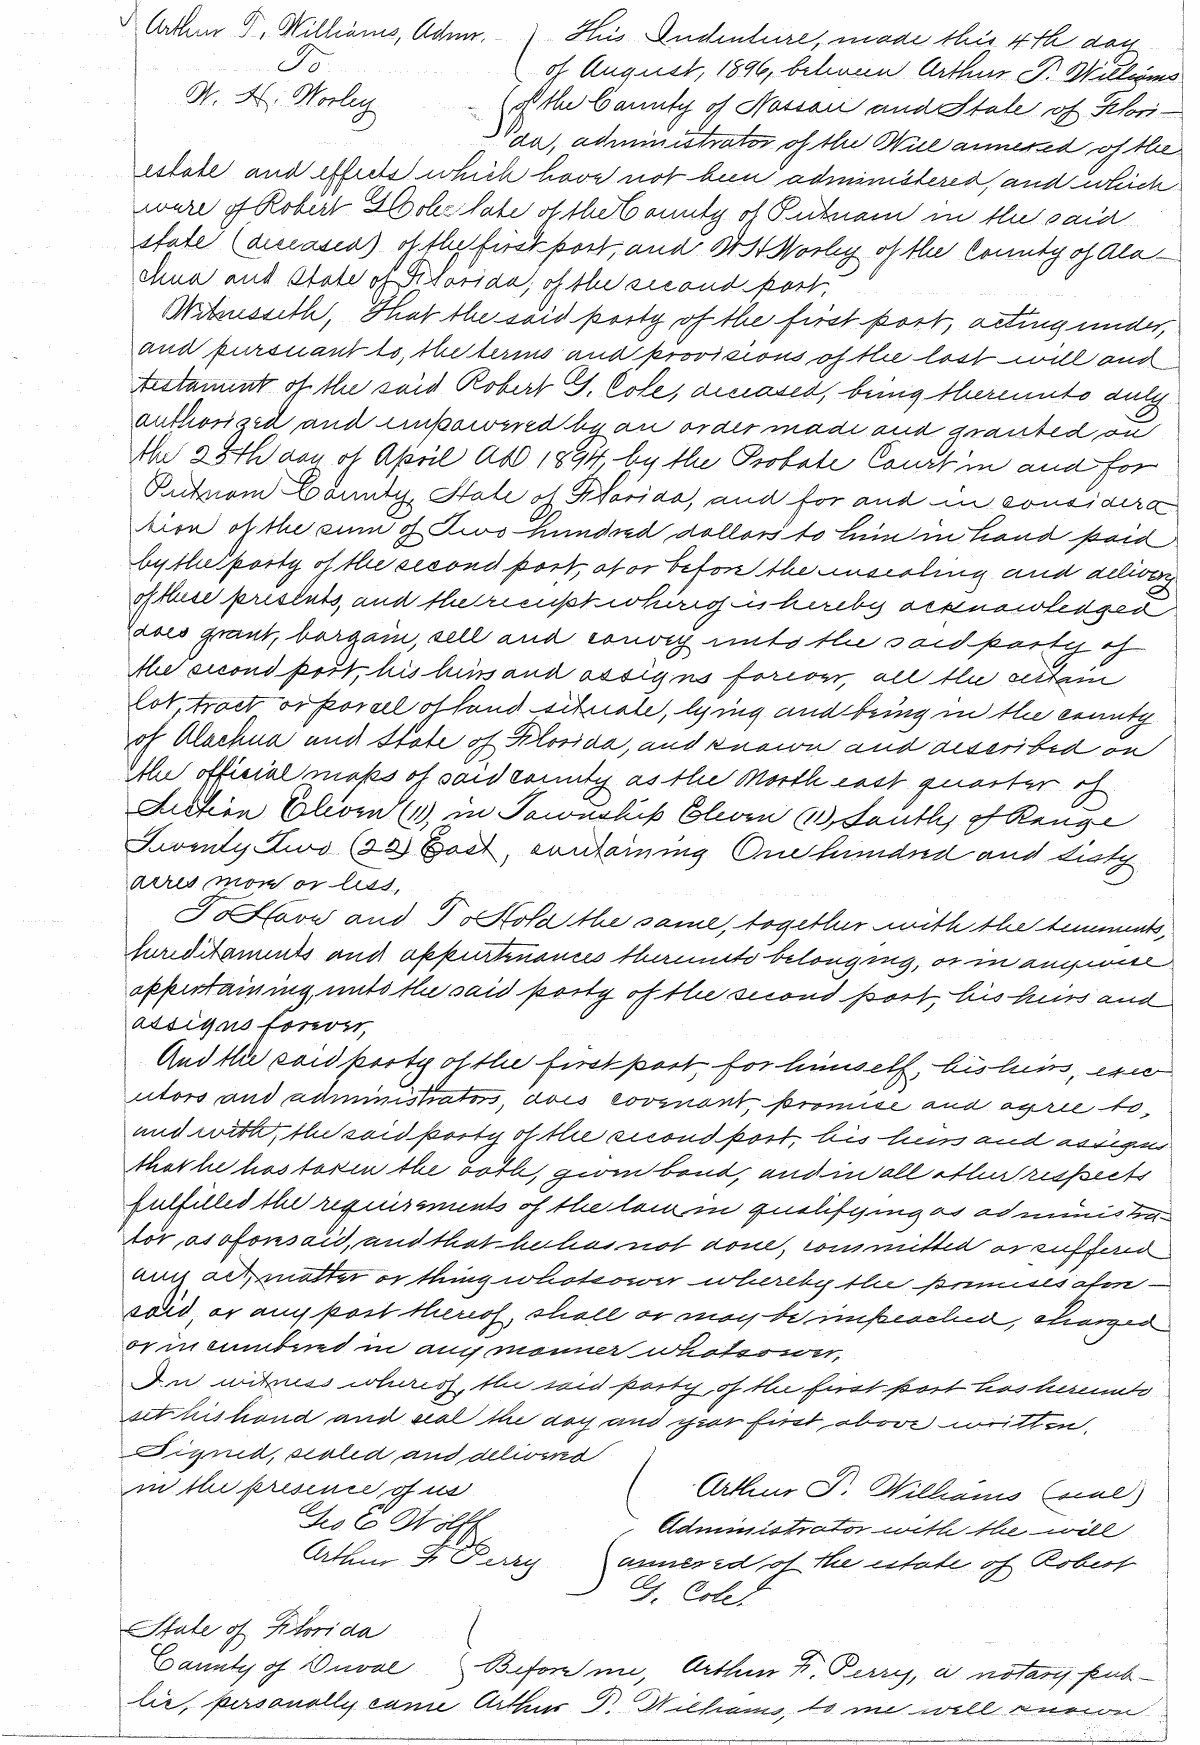 Arthur T. Williams, Admr.
To
W. H. Worley
This Indenture, made this 4th day
of August, 1896, between Arthur T. Williams
of the County of Nassau and State of Flori-
da, administrator of the Will annexed of the
estate and effects which have not been administered, and which
were of Robert G Cole late of the County of Putnam in the said
state (deceased) of the first part, and W H Worley of the County of Ala-
chua and State of Florida, of the second part,
Witnesseth, That the said party of the first part, acting under,
and pursuant to, the terms and provisions of the last will and
testament of the said Robert G. Cole, deceased, being thereunto duly
authorized and empowered by an order made and granted on
the 25th day of April AD 1894, by the Probate Court in and for
Putnam County, State of Florida, and for and in considera
tion of the sum of Two hundred dollars to him in hand paid
by the party of the second part, at or before the ensealing and delivery
of these presents, and the receipt whereof is hereby acknowledged
does grant, bargain, sell and convey unto the said party of
the second part, his heirs and assigns forever, all the certain
lot, tract or parcel of land situate, lying and being in the county
of Alachua and State of Florida, and known and described on
the official maps of said county as the North east quarter of
Section Eleven (11), in Township Eleven (11) South, of Range
Twenty Two (22) East, containing One hundred and sixty
acres more or less,
To Have and To Hold the same, together with the tenements,
hereditaments and appurtenances thereunto belonging, or in anywise
appertaining, unto the said party of the second part, his heirs and
assigns forever,
And the said party of the first part, for himself, his heirs, exec
utors and administrators, does covenant, promise and agree to,
and with, the said party of the second part, his heirs and assigns
that he has taken the oath, given bond, and in all other respects
fulfilled the requirements of the law in qualifying as administra-
tor, as aforesaid, and that he has not done, committed or suffered
any act, matter or thing whatsoever whereby the premises afore-
said, or any part thereof, shall or may be impeached, charged
or incumbered in any manner whatsoever.
In witness whereof, the said party of the first part has hereunto
set his hand and seal the day and year first above written.
Signed, sealed and delivered
in the presence of us
Geo E Wolff
Arthur F Perry
Arthur T. Williams (seal)
Administrator with the will
annexed of the estate of Robert
G. Cole.
State of Florida
County of Duval
Before me, Arthur F. Perry, a notary pub-
lic, personally came Arthur T. Williams, to me well known